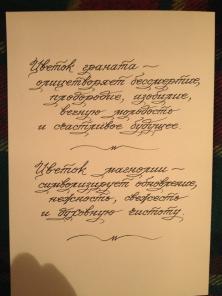 Цветок граната ~
олицетворяет бессмертие,
плодородие, изобилие,
вечную молодость
и счастливое будущее.
Цветок магнолии ~
символизирует обновление,
нежность, свежесть
и духовную чистоту.